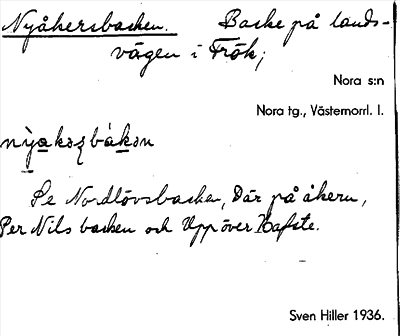 Nyåkersbacken. Backe på lands-
vägen i Frök;
Nora s:n
Nora tg., Västernorrl. l.
Se Nordlövsbacken, Där på åkern,
Per Nils backen och Uppöver Hafste.
Sven Hiller 1936.